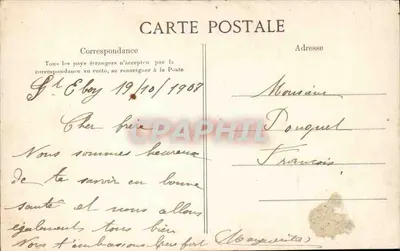 CARTE POSTALE
Correspondance
Tous les pays étrangers n'acceptent pas la
correspondance au recto, se renseigner à la Poste
Adresse
St Eloy 19/10/1907
Cher frère
Nous sommes heureux
de te savoir en bonne
santé et nous allons
également tous bien
Nous t'embrassons fort
Monsieur
Pouquet
François
(Marguerite)
CPAPHIL